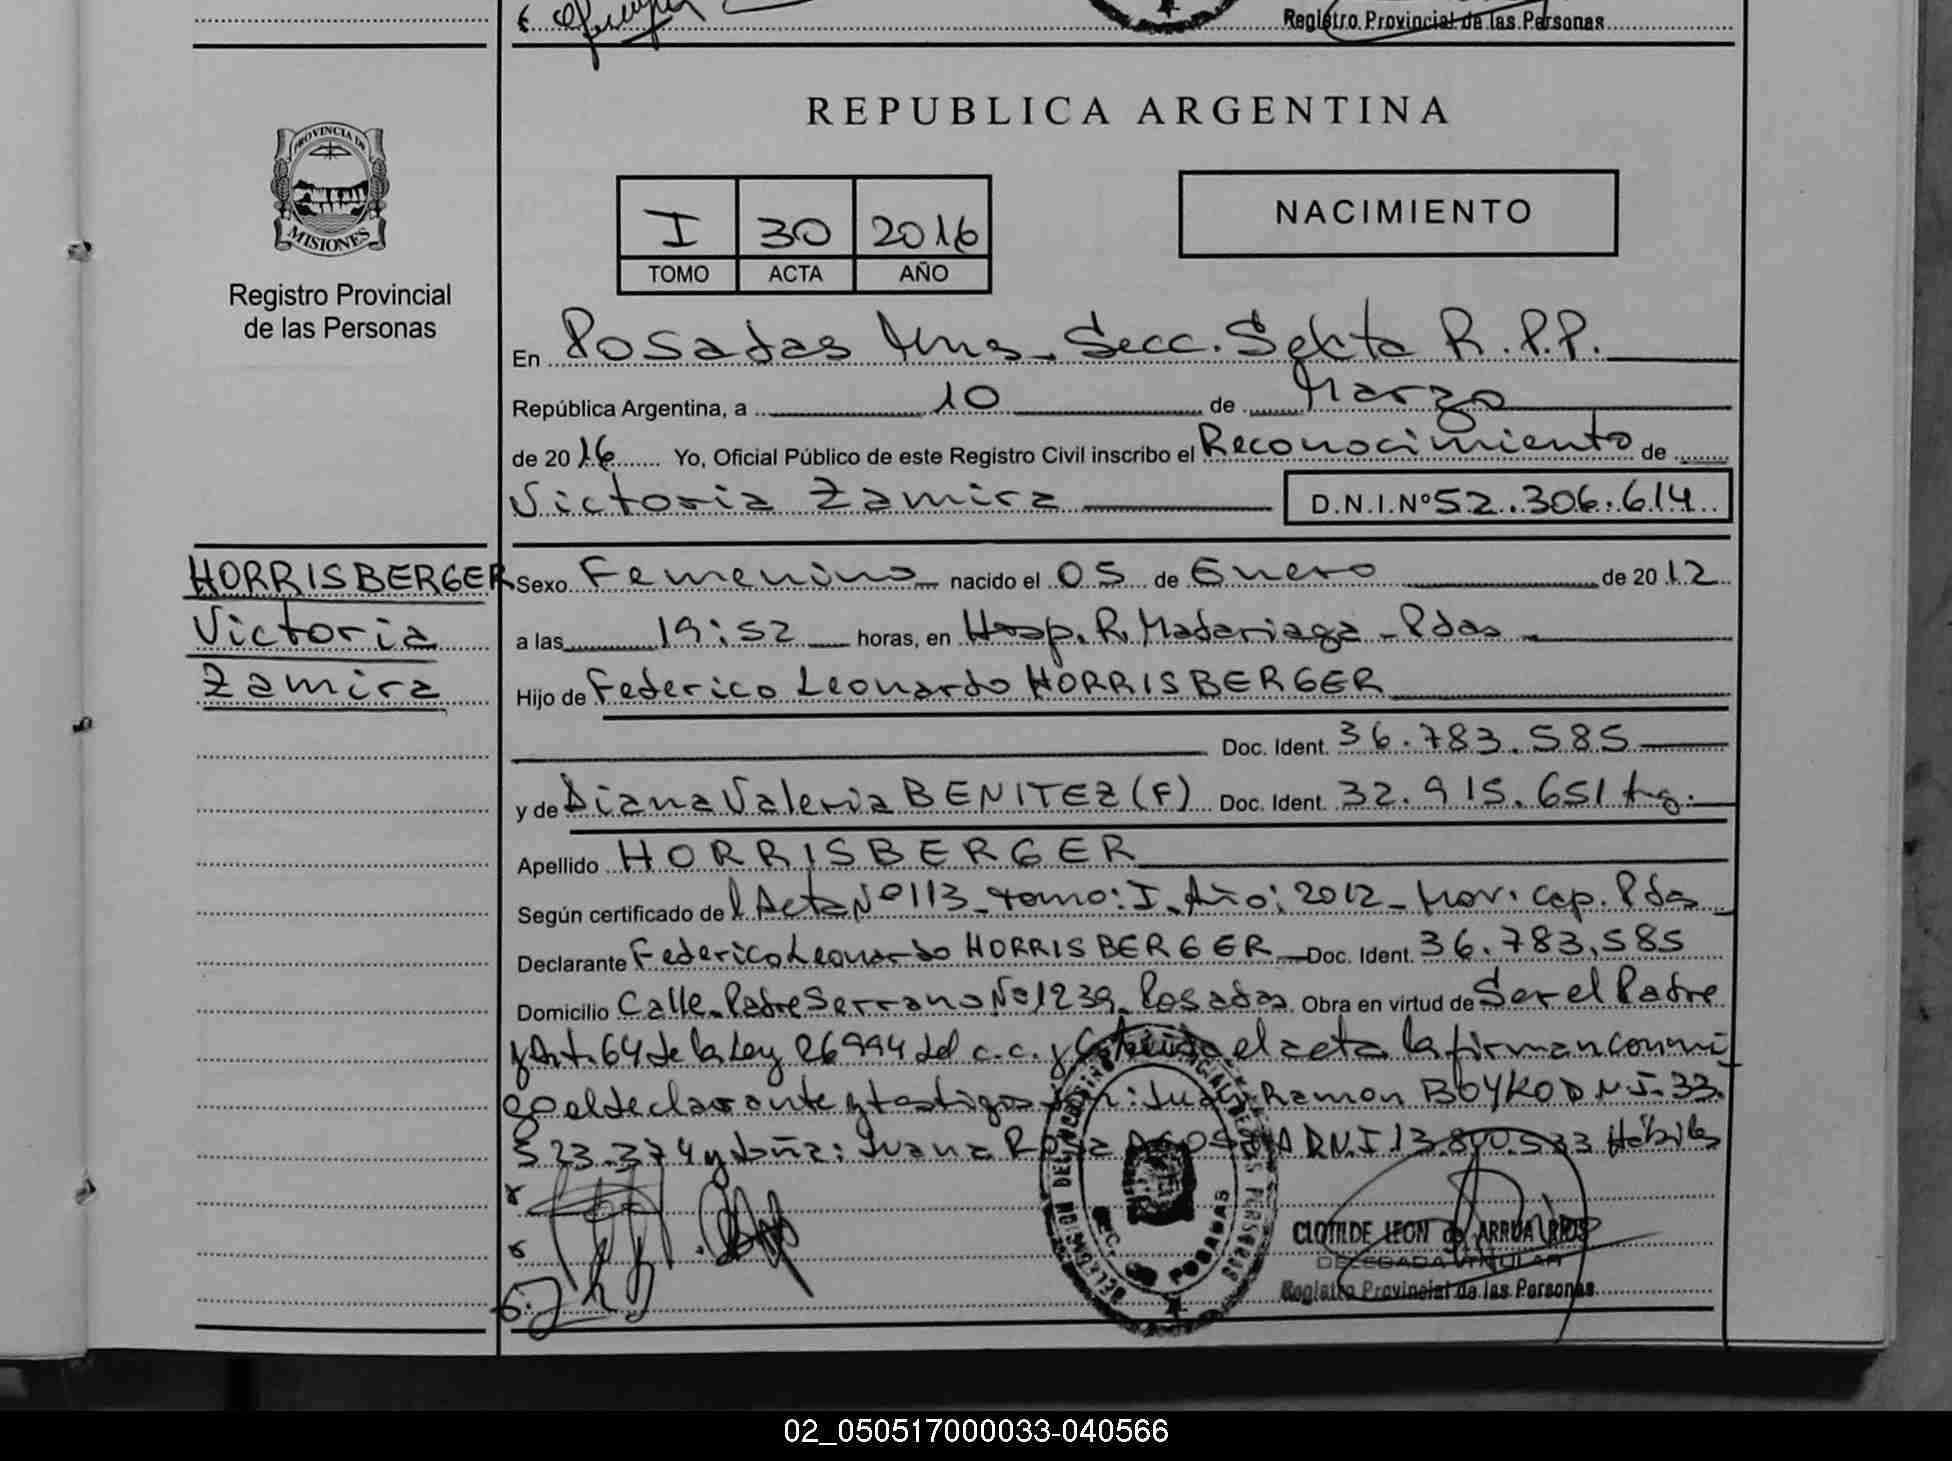 Registro Provincial de las Personas
REPUBLICA ARGENTINA
PROVINCIA DE
MISIONES
Registro Provincial
de las Personas
I 30 2016
TOMO ACTA AÑO
NACIMIENTO
En Posadas Mns. Secc. Sexta R.P.P.
República Argentina, a 10 de Marzo
de 2016 Yo, Oficial Público de este Registro Civil inscribo el Reconocimiento de
Victoria Zamira D.N.I.Nº 52.306.614
HORRISBERGER
Victoria
Zamira
Sexo Femenino nacido el 05 de Enero de 2012
a las 19:52 horas, en Hosp. R. Madariaga - Pdas
Hijo de Federico Leonardo HORRISBERGER
Doc. Ident. 36.783.585
y de Diana Valeria BENITEZ (F) Doc. Ident. 32.915.651
Apellido HORRISBERGER
Según certificado del Acta Nº 113 - tomo: I - Año: 2012 - Cap. Pdas
Declarante Federico Leonardo HORRISBERGER Doc. Ident. 36.783.585
Domicilio Calle Padre Serrano Nº 1239 - Posadas Obra en virtud de Ser el Padre
y Art. 64 de la Ley 26994 del c.c. y el acta la firman conmi
go el declarante y testigos Juan Ramon BOYKO D.N.I. 33.
523.374 y doña: Juana Rosa D.N.I 13.800.533 Hábiles
DELEGACION DEL REGISTRO PROVINCIAL DE LAS PERSONAS
SECC. 6º POSADAS
CLOTILDE LEON de ARRUA RIOS
DELEGADA TITULAR
Registro Provincial de las Personas
02_050517000033-040566